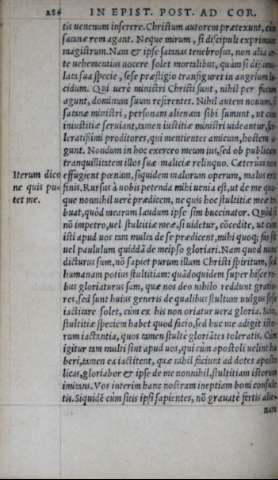 226 IN EPIST. POST. AD COR.
tis uenenum inserere. Christum autorem prætexunt, cùm
satanæ rem agant. Neque mirum, si discipuli exprimunt
magistrum. Nam & ipse satanas tenebrosus, non alia ar-
te uehementius nocere solet mortalibus, quàm si dissimu-
lata sua specie, sese præstigio transfiguret in angelum lu-
cidum. Qui uerè ministri Christi sunt, nihil per fucum
agunt, dominum suum referentes. Nihil autem nouum, si
satanæ ministri, personam alienam sibi sumunt, ut cùm
iniustitiæ seruiant, tamen iustitiæ ministri uideantur, sce-
leratissimi proditores, qui mentientes amicum, hostem a-
gunt. Nondum in hoc exerceo meum ius, sed ob publicam
tranquillitatem illos suæ maliciæ relinquo. Cæterùm non
Iterum dico effugient pœnam, siquidem malorum operum, malus erit
ne quis pu- finis. Rursus à uobis petenda mihi uenia est, ut de me quo
tet me. que nonnihil uerè prædicem, ne quis hoc stultitiæ meæ tri
buat, quòd mearum laudum ipse sim buccinator. Quòd si
nō impetro, uel stultitiæ meæ, si uidetur, cōcedite, ut cùm
isti apud uos tam multa de se prædicent, mihi quoq; fas sit
uel paululum quiddā de meipso gloriari. Nam quod nunc
dicturus sum, nō sapiet purum illum Christi spiritum, sed
humanam potius stultitiam: quādoquidem super hisce re-
bus gloriaturus sum, quæ nos deo nihilo reddunt gratio-
res, sed sunt huius generis de qualibus stultum uulgus sese
iactitare solet, cùm ex his non oriatur uera gloria. Non,
stultitiæ speciem habet quod facio, sed huc me adigit isto-
rum iactantia, quos tamen stultè gloriātes toleratis. Cùm
igitur tam multi sint apud uos, qui cùm apostoli uelint ha
beri, tamen ea iactitent, quæ nihil faciunt ad dotes aposto
licas, gloriabor & ipse de me nonnihil, stultitiam istorum
imitans. Vos interim hanc nostram ineptiam boni consule
tis. Siquidē cùm sitis ipsi sapientes, nō grauatè fertis alie-
nam